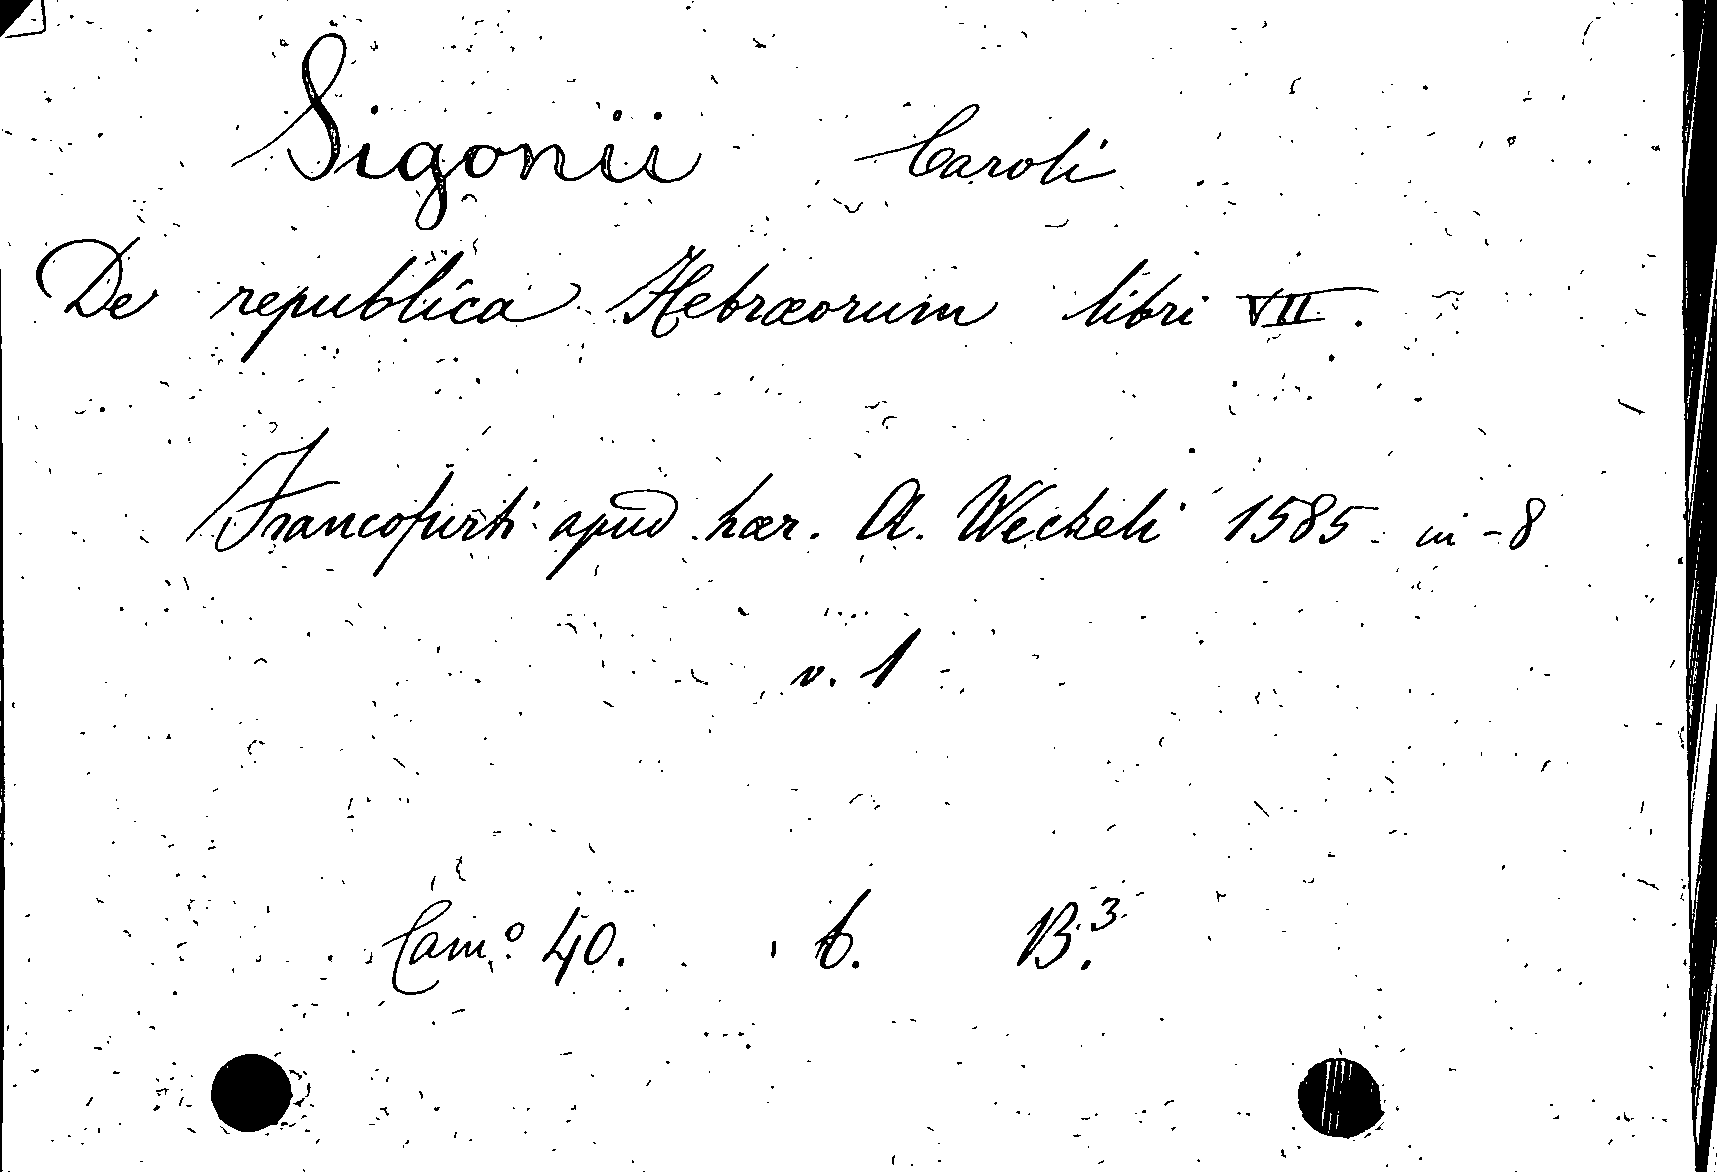 Sigonii Caroli
De republica Hebræorum libri VII.
Francofurti apud hær. A. Wecheli 1585 in-8
v. 1
Cam.º 40. 6. B.³